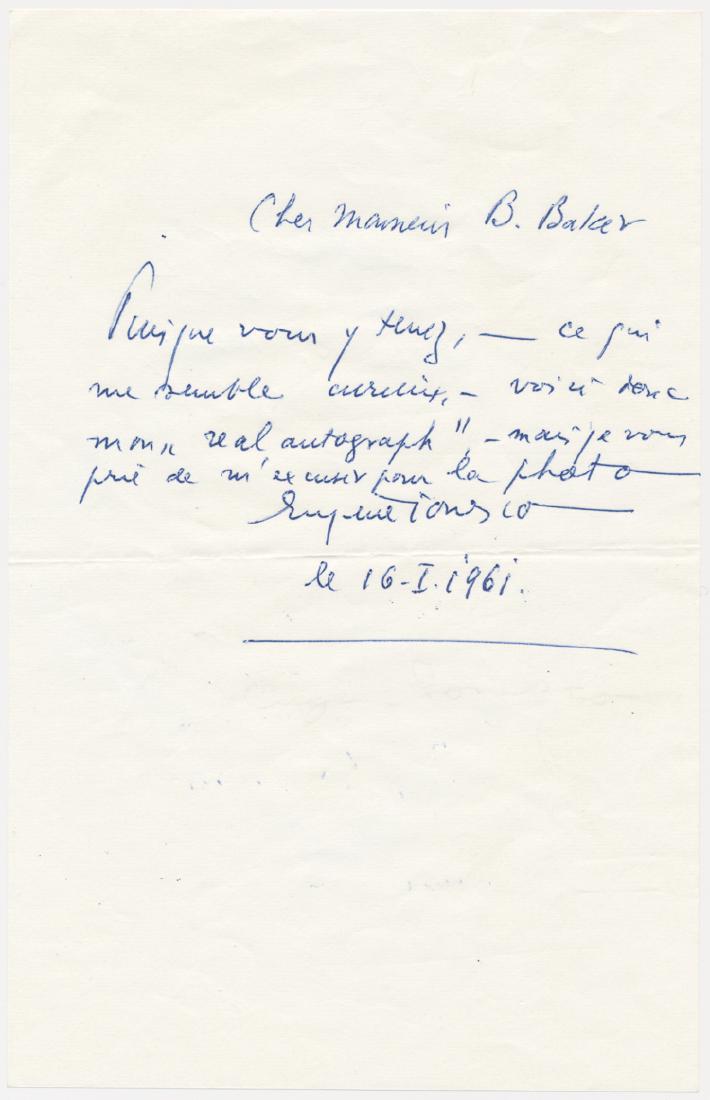 Cher Monsieur B. Baker
Puisque vous y tenez, — ce qui
me semble curieux, – voici donc
mon „ real autograph" – mais je vous
prie de m'excuser pour la photo
Eugène Ionesco
le 16-I. 1961.